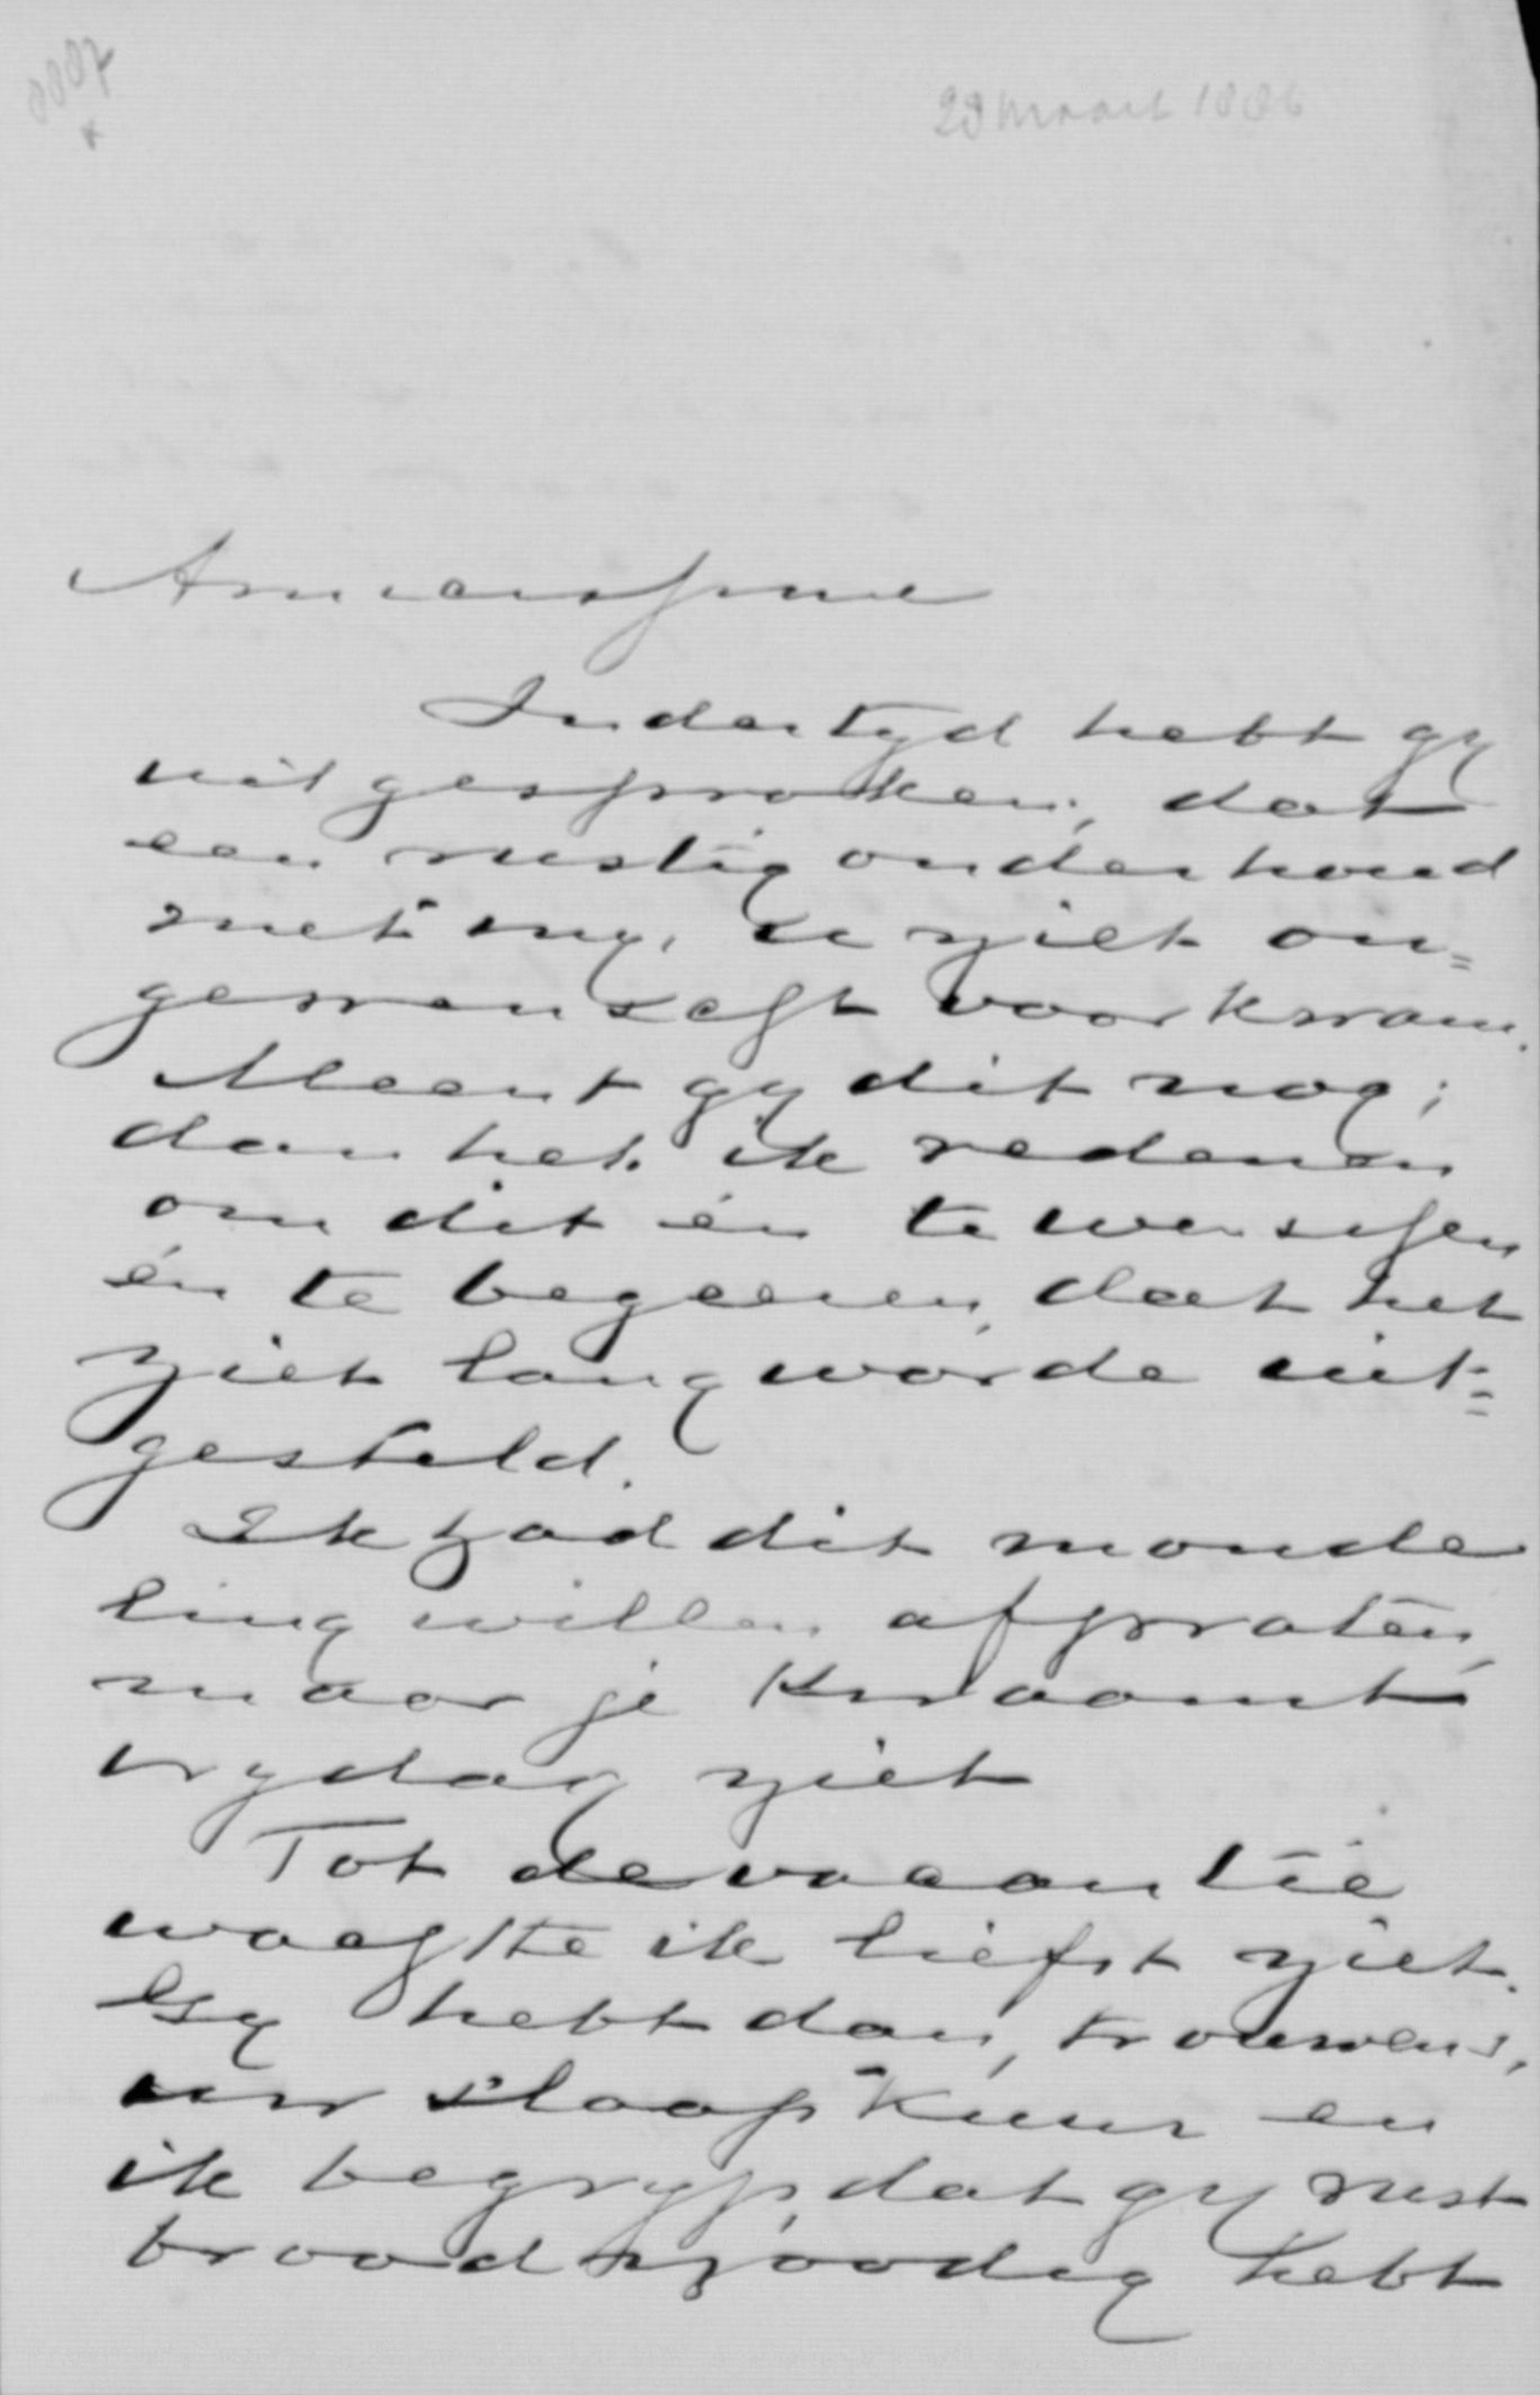 0007
x
29 maart 1886
Amicissime
Indertyd hebt gy
uitgesproken, dat
een rustig onderhoud
met my, u niet on=
gewenscht voorkwam.
Meent gy dit nog;
dan heb ik redenen
om dit én te wenschen
én te begeeren, dat het
niet lang worde uit=
gesteld.
Ik had dit monde
ling willen afpraten,
maar je kwaamt
vrydag niet
Tot de vacantie
wachtte ik liefst niet.
Gy hebt dan, trouwens,
uw slaapkuur en
ik begryp, dat gy rust
broodnoodig hebt